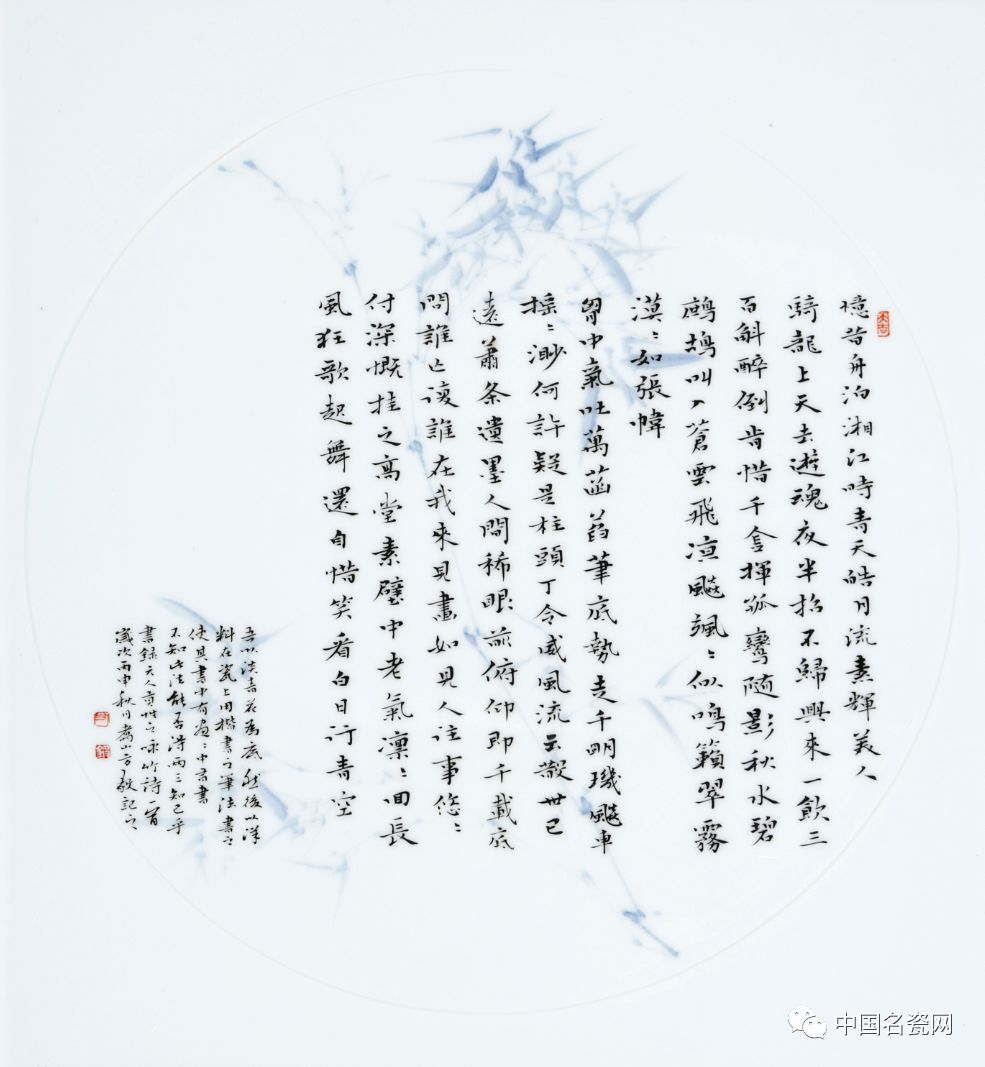 憶昔舟泊湘江時青天皓月流素輝美人
騎龍上天去遊魂夜半招不歸興來一飲三
百斛醉倒肯惜千金揮孤鸞隨影秋水碧
鹧鸪叫入蒼雲飛凉飈颯〻似鳴籟翠霧
漠〻如張幃
胷中氣吐萬菡萏筆底勢走千明璣飈車
摇〻渺何許疑是柱頭丁令威風流云散世已
遠蕭条遺墨人間稀眼前俯仰即千載底
問誰亡複誰在我來見畫如見人往事悠〻
付深慨挂之高堂素壁中老氣凛〻回長
風狂歌起舞還自惜笑看白日行青空
吾以淡青花為底然後以洋
料在瓷上用楷書之筆法書之
使其書中有画〻中有書
不知此法能否得兩三知己乎
書錄元人詠竹詩一首
歲次丙申秋月
大吉
中国名瓷网